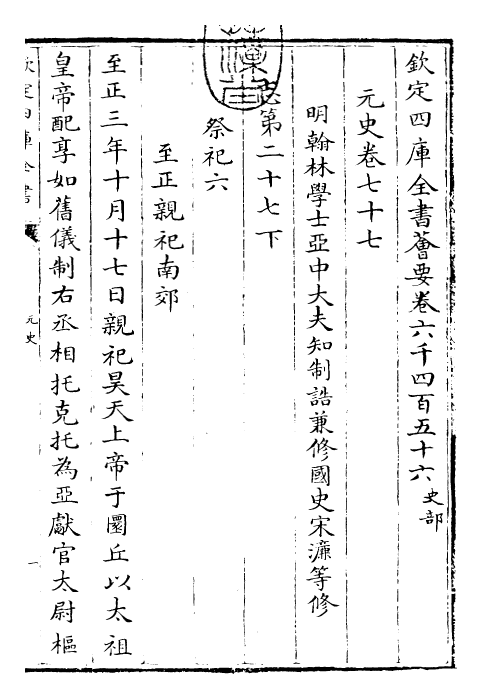 欽定四庫全書薈要卷六千四百五十六史部
元史卷七十七
明翰林學士亞中大夫知制誥兼修國史宋濂等修
志第二十七下
祭祀六
至正親祀南郊
至正三年十月十七日親祀昊天上帝于圜丘以太祖
皇帝配享如舊儀制右丞相托克托為亞獻官太尉樞
欽定四庫全書
元史
一